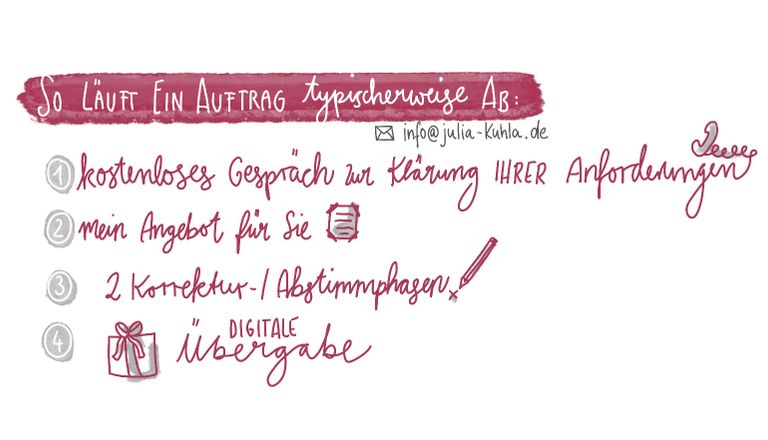 So LÄUFT EIN AUFTRAG typischerweise AB:
info@julia-kuhla.de
1 kostenloses Gespräch zur Klärung IHRER Anforderungen
2 mein Angebot für Sie
3 2 Korrektur-/Abstimmphasen
4 DIGITALE Übergabe